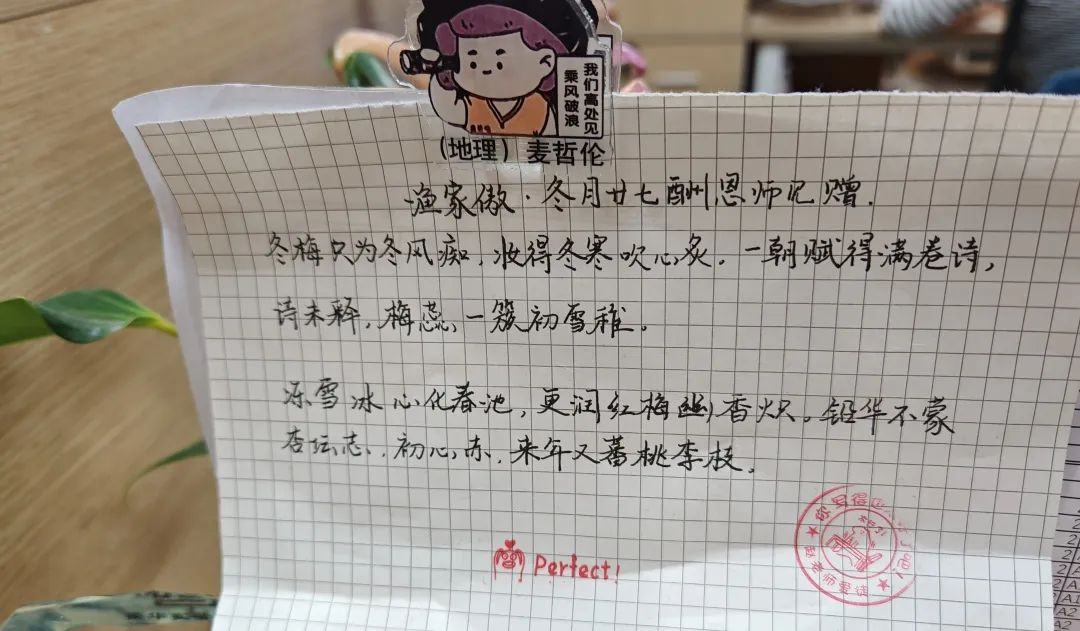 我们高处见
乘风破浪
(地理) 麦哲伦
渔家傲·冬月廿七酬恩师见赠.
冬梅只为冬风痴,妆得冬寒吹心炙.一朝赋得满卷诗,
诗未释,梅蕊一簇初雪稚。
冻雪冰心化春池,更润红梅幽香炽。铅华不蒙
杏坛志,初心赤,来年又蕃桃李枝.
Perfect!
师爱徒